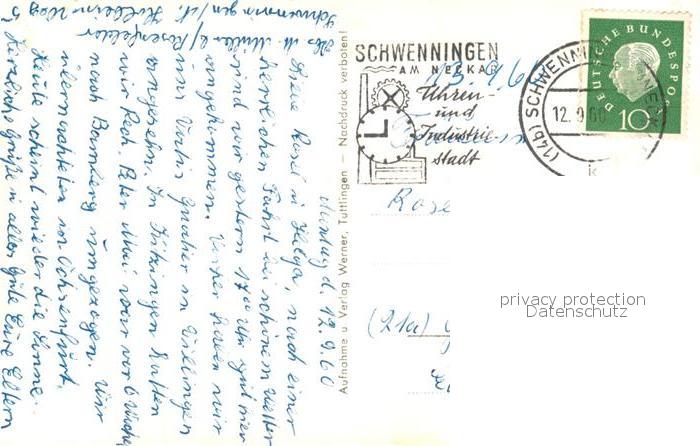 Montag d. 12.9.60
Liebe Rosel u Helga, nach einer
herrlichen Fahrt bei schönem Wetter
sind wir gestern 17 00 Uhr gut hier
angekommen. Vorher haben wir
uns
angesehn. In Kitzingen hatten
wir Pech. Peter Mai war vor 6 Wochen
nach Bamberg umgezogen. Wir
übernachteten vor Ochsenfurt.
Heute scheint wieder die Sonne.
Herzliche Grüße u alles Gute Eure Eltern
Abs. M. Müller b/ Rosenfelder
Schwenningen/N.
Aufnahme u Verlag Werner, Tuttlingen – Nachdruck verboten!
SCHWENNINGEN
AM NECKAR
Uhren-
und
Industrie
stadt
(14b) SCHWENNINGEN
12.9.60
DEUTSCHE BUNDESPOST
10
Rose
(21a)
privacy protection
Datenschutz